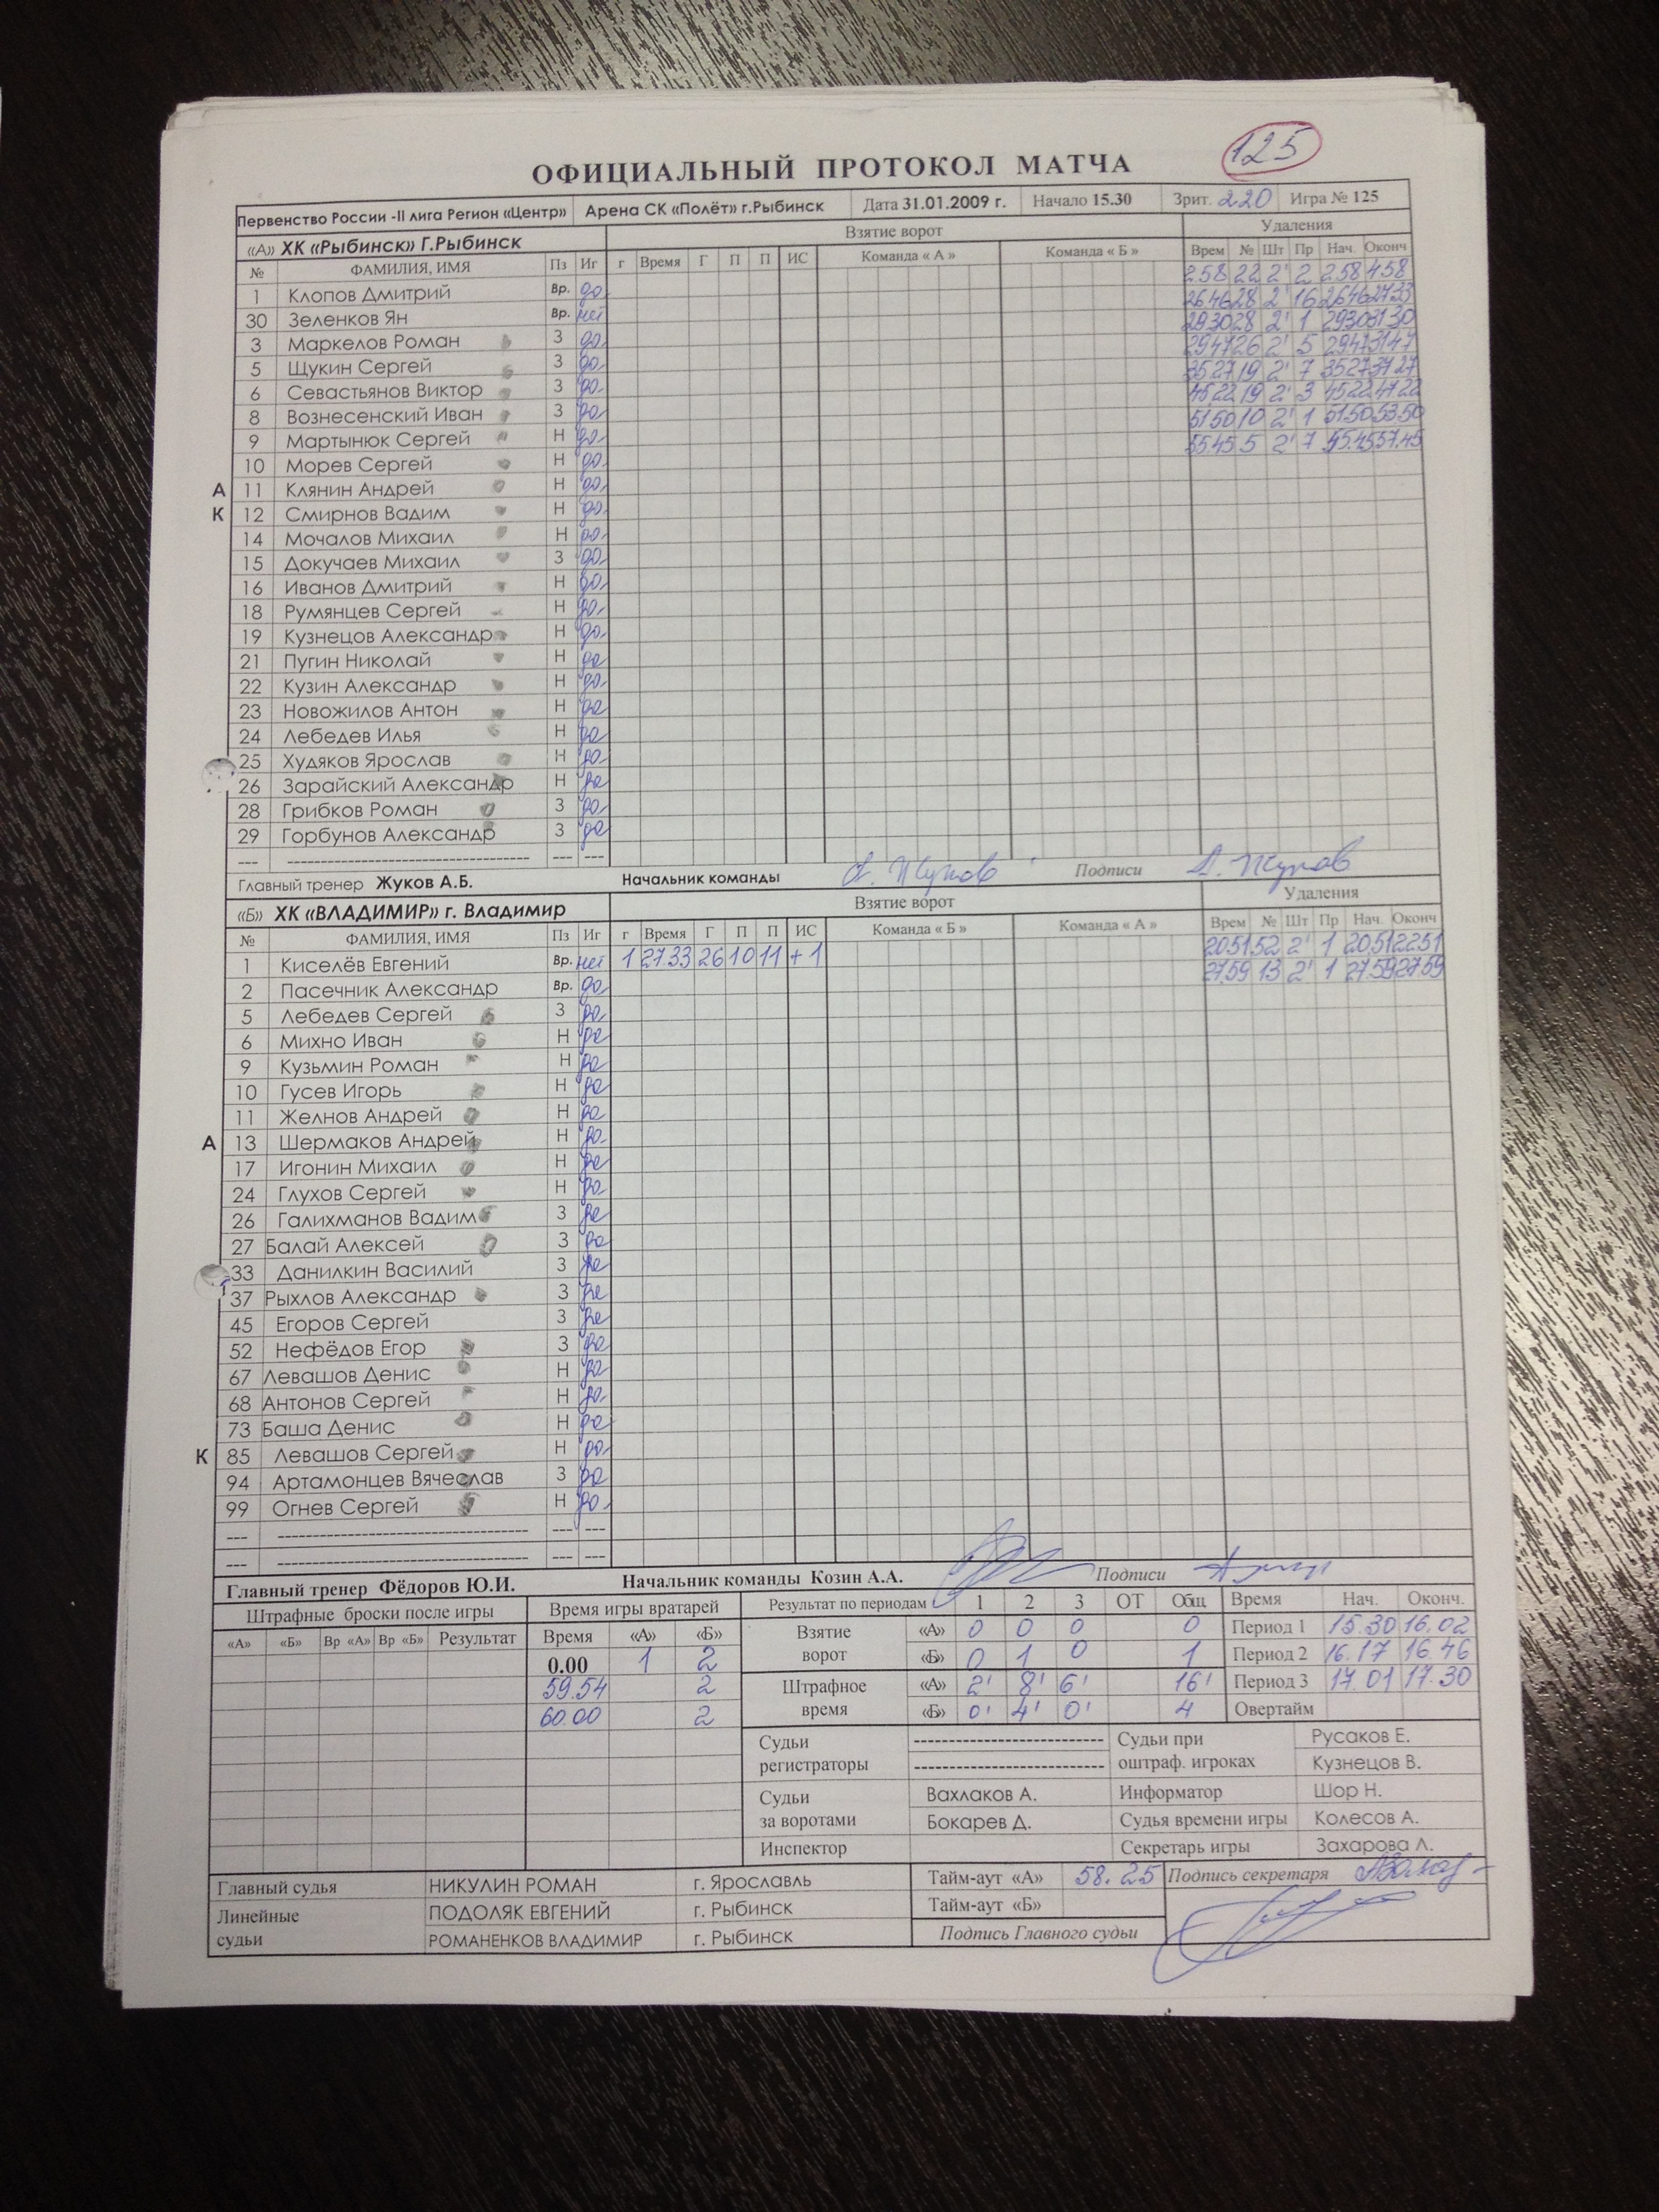 125
ОФИЦИАЛЬНЫЙ ПРОТОКОЛ МАТЧА
Первенство России -II лига Регион «Центр» Арена СК «Полёт» г.Рыбинск Дата 31.01.2009 г. Начало 15.30 Зрит. 220 Игра № 125
«А» ХК «Рыбинск» Г.Рыбинск Взятие ворот Удаления
№ ФАМИЛИЯ, ИМЯ Пз Иг г Время Г П П ИС Команда « А » Команда « Б » Врем № Шт Пр Нач. Оконч
2.58 22 2' 2 2.58 4.58
1 Клопов Дмитрий Вр. да 26.46 28 2 16 26.46 27.33
30 Зеленков Ян Вр. нет 29.30 28 2' 1 29.30 31.30
3 Маркелов Роман З да 29.47 26 2' 5 29.47 31.47
5 Щукин Сергей З да 35.27 19 2' 7 35.27 37.27
6 Севастьянов Виктор З да 45.22 19 2' 3 45.22 47.22
8 Вознесенский Иван З да 51.50 10 2' 1 51.50 53.50
9 Мартынюк Сергей Н да 55.45 5 2' 7 55.45 57.45
10 Морев Сергей Н да
А 11 Клянин Андрей Н да
К 12 Смирнов Вадим Н да
14 Мочалов Михаил Н да
15 Докучаев Михаил З да
16 Иванов Дмитрий Н да
18 Румянцев Сергей Н да
19 Кузнецов Александр Н да
21 Пугин Николай Н да
22 Кузин Александр Н да
23 Новожилов Антон Н да
24 Лебедев Илья Н да
25 Худяков Ярослав Н да
26 Зарайский Александр Н да
28 Грибков Роман З да
29 Горбунов Александр З да
--- ---------------------------------- --- ---
Главный тренер Жуков А.Б. Начальник команды А. Жуков Подписи А. Жуков
«Б» ХК «ВЛАДИМИР» г. Владимир Взятие ворот Удаления
№ ФАМИЛИЯ, ИМЯ Пз Иг г Время Г П П ИС Команда « Б » Команда « А » Врем № Шт Пр Нач. Оконч
1 Киселёв Евгений Вр. нет 1 27.33 26 10 11 +1 20.51 52 2' 1 20.51 22.51
2 Пасечник Александр Вр. да 27.59 13 2' 1 27.59 27.59
5 Лебедев Сергей З да
6 Михно Иван Н да
9 Кузьмин Роман Н да
10 Гусев Игорь Н да
11 Желнов Андрей Н да
А 13 Шермаков Андрей Н да
17 Игонин Михаил Н да
24 Глухов Сергей Н да
26 Галихманов Вадим З да
27 Балай Алексей З да
33 Данилкин Василий З да
37 Рыхлов Александр З да
45 Егоров Сергей З да
52 Нефёдов Егор З да
67 Левашов Денис Н да
68 Антонов Сергей Н да
73 Баша Денис Н да
К 85 Левашов Сергей Н да
94 Артамонцев Вячеслав З да
99 Огнев Сергей Н да
--- ----------------------------------- --- ---
--- ----------------------------------- --- ---
Главный тренер Фёдоров Ю.И. Начальник команды Козин А.А. Подписи
Штрафные броски после игры Время игры вратарей Результат по периодам 1 2 3 ОТ Общ Время Нач. Оконч.
«А» «Б» Вр «А» Вр «Б» Результат Время «А» «Б» Взятие ворот «А» 0 0 0 0 Период 1 15.30 16.02
0.00 1 2 «Б» 0 1 0 1 Период 2 16.17 16.46
59.54 2 Штрафное время «А» 2' 8' 6' 16' Период 3 17.01 17.30
60.00 2 «Б» 0' 4' 0' 4 Овертайм
Судьи регистраторы --------------------------- Судьи при оштраф. игроках Русаков Е.
--------------------------- Кузнецов В.
Судьи за воротами Вахлаков А. Информатор Шор Н.
Бокарев Д. Судья времени игры Колесов А.
Инспектор Секретарь игры Захарова Л.
Главный судья НИКУЛИН РОМАН г. Ярославль Тайм-аут «А» 58.25 Подпись секретаря
Линейные судьи ПОДОЛЯК ЕВГЕНИЙ г. Рыбинск Тайм-аут «Б»
РОМАНЕНКОВ ВЛАДИМИР г. Рыбинск Подпись Главного судьи